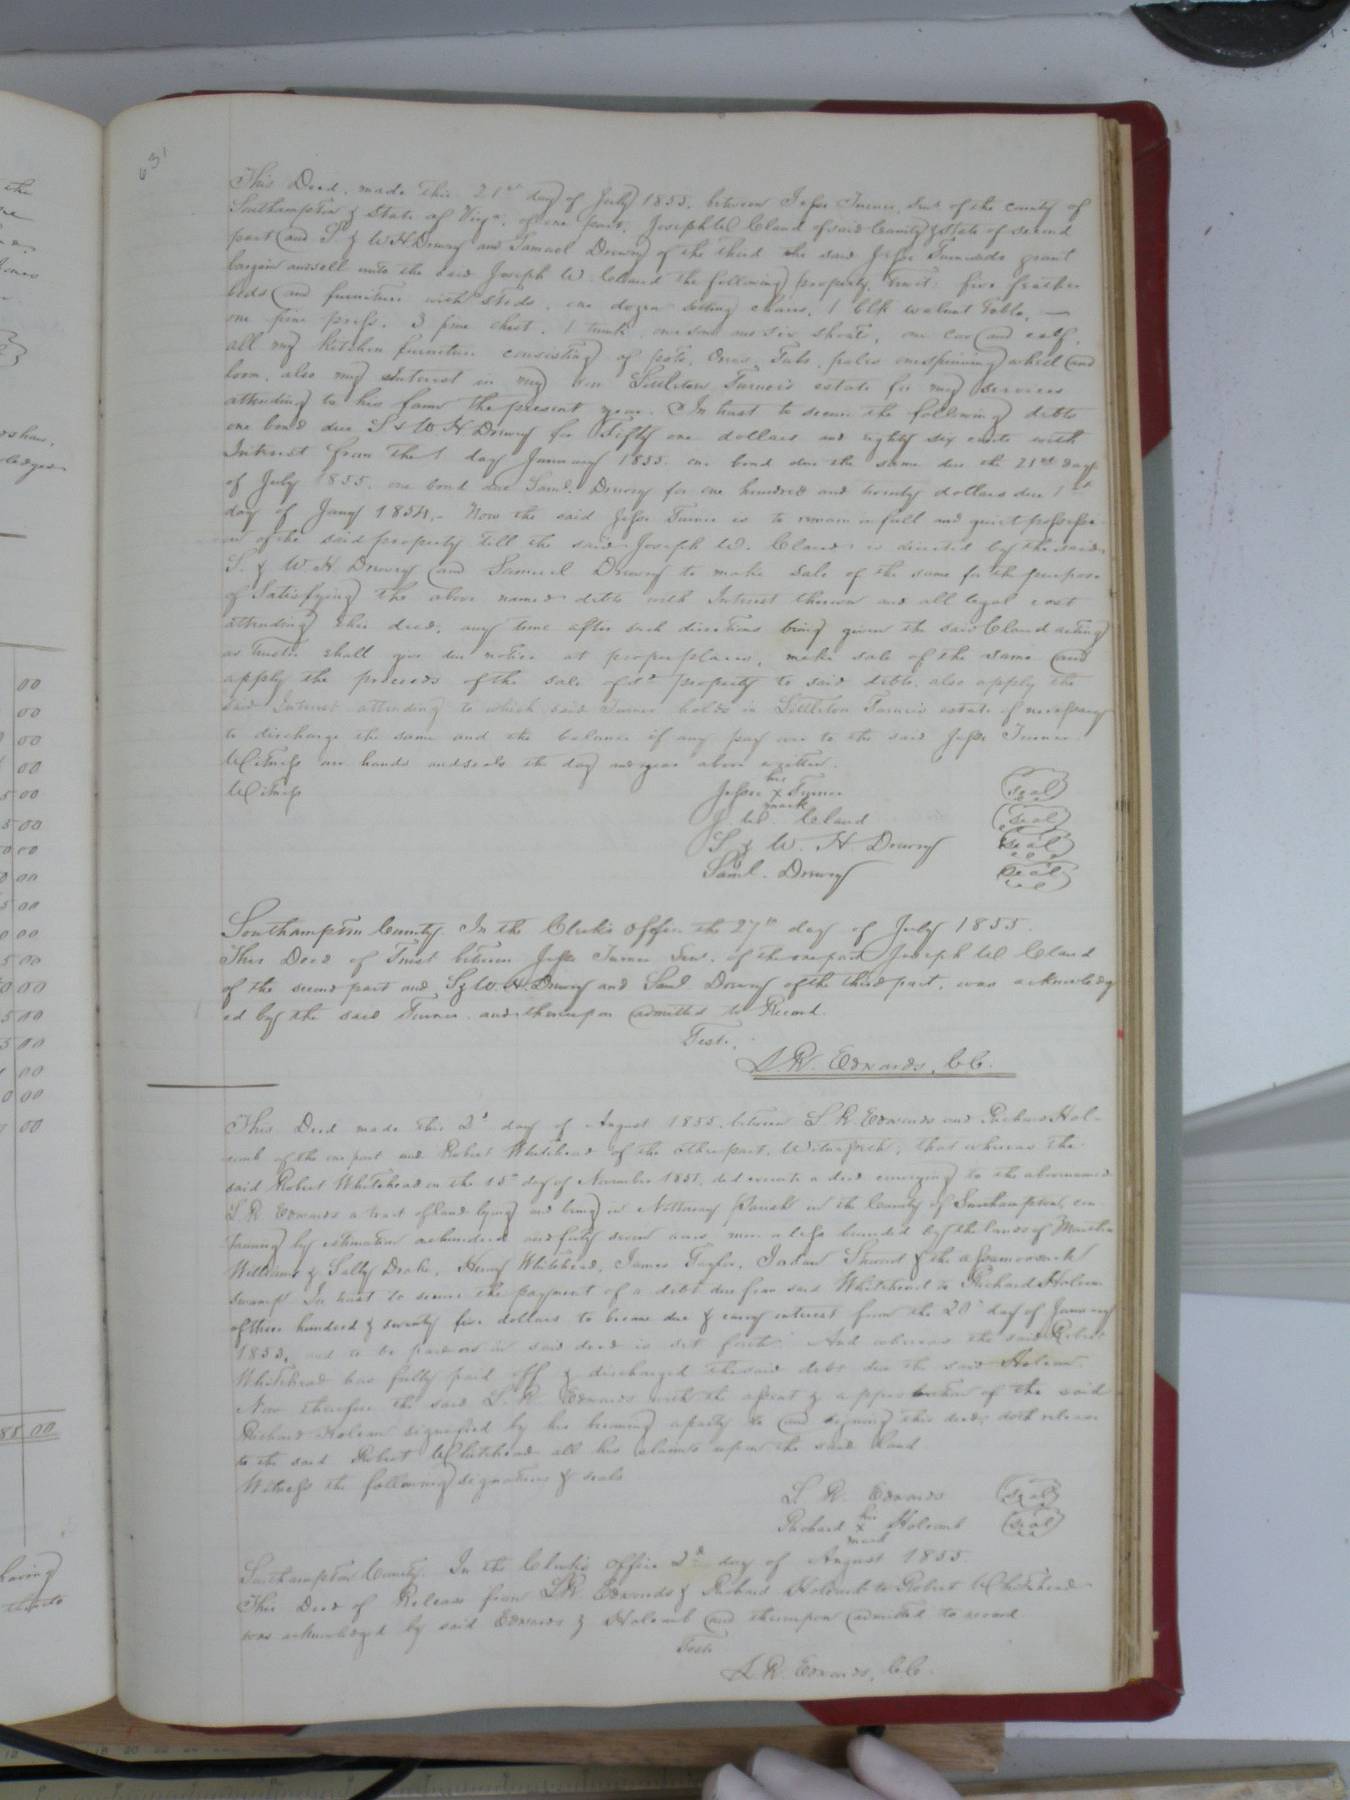 631
This Deed, made this 21st day of July 1855. between Jesse Turner, Senr. of the county of
Southampton & State of Virga. of one part, Joseph W Claud of said County & State of second
part and S. & W. H. Drewry and Samuel Drewry of the third the said Jesse Turner does grant
bargain and sell unto the said Joseph W. Claud the following property, towit: five feather
beds and furniture with steds, one dozen sitting chairs, 1 blk walnut Table, —
one pine press, 3 pine chest, 1 trunk, one sow and six shoats, one cow and calf,
all my kitchen furniture consisting of pots, Ovens, Tubs, pales one spinning wheel and
loom, also my interest in my son Littleton Turner's estate for my services
attending to his farm the present year. In trust to secure the following debts
one bond due S & W H Drewry for Fifty one dollars and eighty six cents with
Interest from the 1 day January 1855. one bond due the same due the 21st day
of July 1855. one bond due Saml. Drewry for one hundred and twenty dollars due 1st
day of Jany 1854,- Now the said Jesse Turner is to remain in full and quiet possessi-
on of the said property till the said Joseph W. Claud is directed by the said
S. & W. H. Drewry and Samuel Drewry to make sale of the same for the purpose
of Satisfying the above named debts with Interest thereon and all legal cost
attending this deed, any time after such directions being given the said Claud acting
as Trustee shall give due notice at proper places, make sale of the same and
apply the proceeds of the sale of sd. property to said debts, also apply the
said Interest attending to which said Turner holds in Littleton Turner's estate if necessary
to discharge the same and the balance if any pay over to the said Jesse Turner.
Witness our hands and seals the day and year above written.
Witness
Jesse his x mark Turner (seal)
J. W. Claud (seal)
S & W. H Drewry (seal)
Saml. Drewry (seal)
Southampton County. In the Clerk's office the 27th day of July 1855.
This Deed of Trust between Jesse Turner Senr. of the one part Joseph W Claud
of the second part and S & W. H. Drewry and Saml Drewry of the third part, was acknowledg
ed by the said Turner and thereupon admitted to Record.
Teste,
L. R. Edwards, C.C.
This Deed made this 2d day of August 1855. between L. R. Edwards and Richard Hol-
comb of the one part and Robert Whitehead of the other part, Witnesseth, that whereas the
said Robert Whitehead on the 15th day of November 1851, did execute a deed conveying to the abovenamed
L R Edwards a tract of land lying and being in Nottoway Parish in the County of Southampton, con
taining by estimation one hundred and fifty seven acres, more or less bounded by the lands of
Williams & Sally Drake, Henry Whitehead, James Taylor, Jordan Stewart & the Assamoosack
swamp In trust to secure the payment of a debt due from said Whitehead to Richard Holcomb
of three hundred & seventy five dollars to become due & carry interest from the 20th day of January
1853, and to be paid as in said deed is set forth. And whereas the said Robert
Whitehead has fully paid off & discharged the said debt due the said Holcom.
Now therefore the said L. R. Edwards with the assent & approbation of the said
Richard Holcom signified by his becoming a party to and signing this deed; doth release
to the said Robert Whitehead all his claims upon the said land
Witness the following signatures & seals
L R. Edwards (seal)
Richard his x mark Holcomb (seal)
Southampton County. In the Clerk's office 2d day of August 1855.
This Deed of Release from L.R. Edwards & Richard Holcomb to Robert Whitehead
was acknowledged by said Edwards & Holcomb and thereupon admitted to record
Teste
L. R. Edwards, C.C.